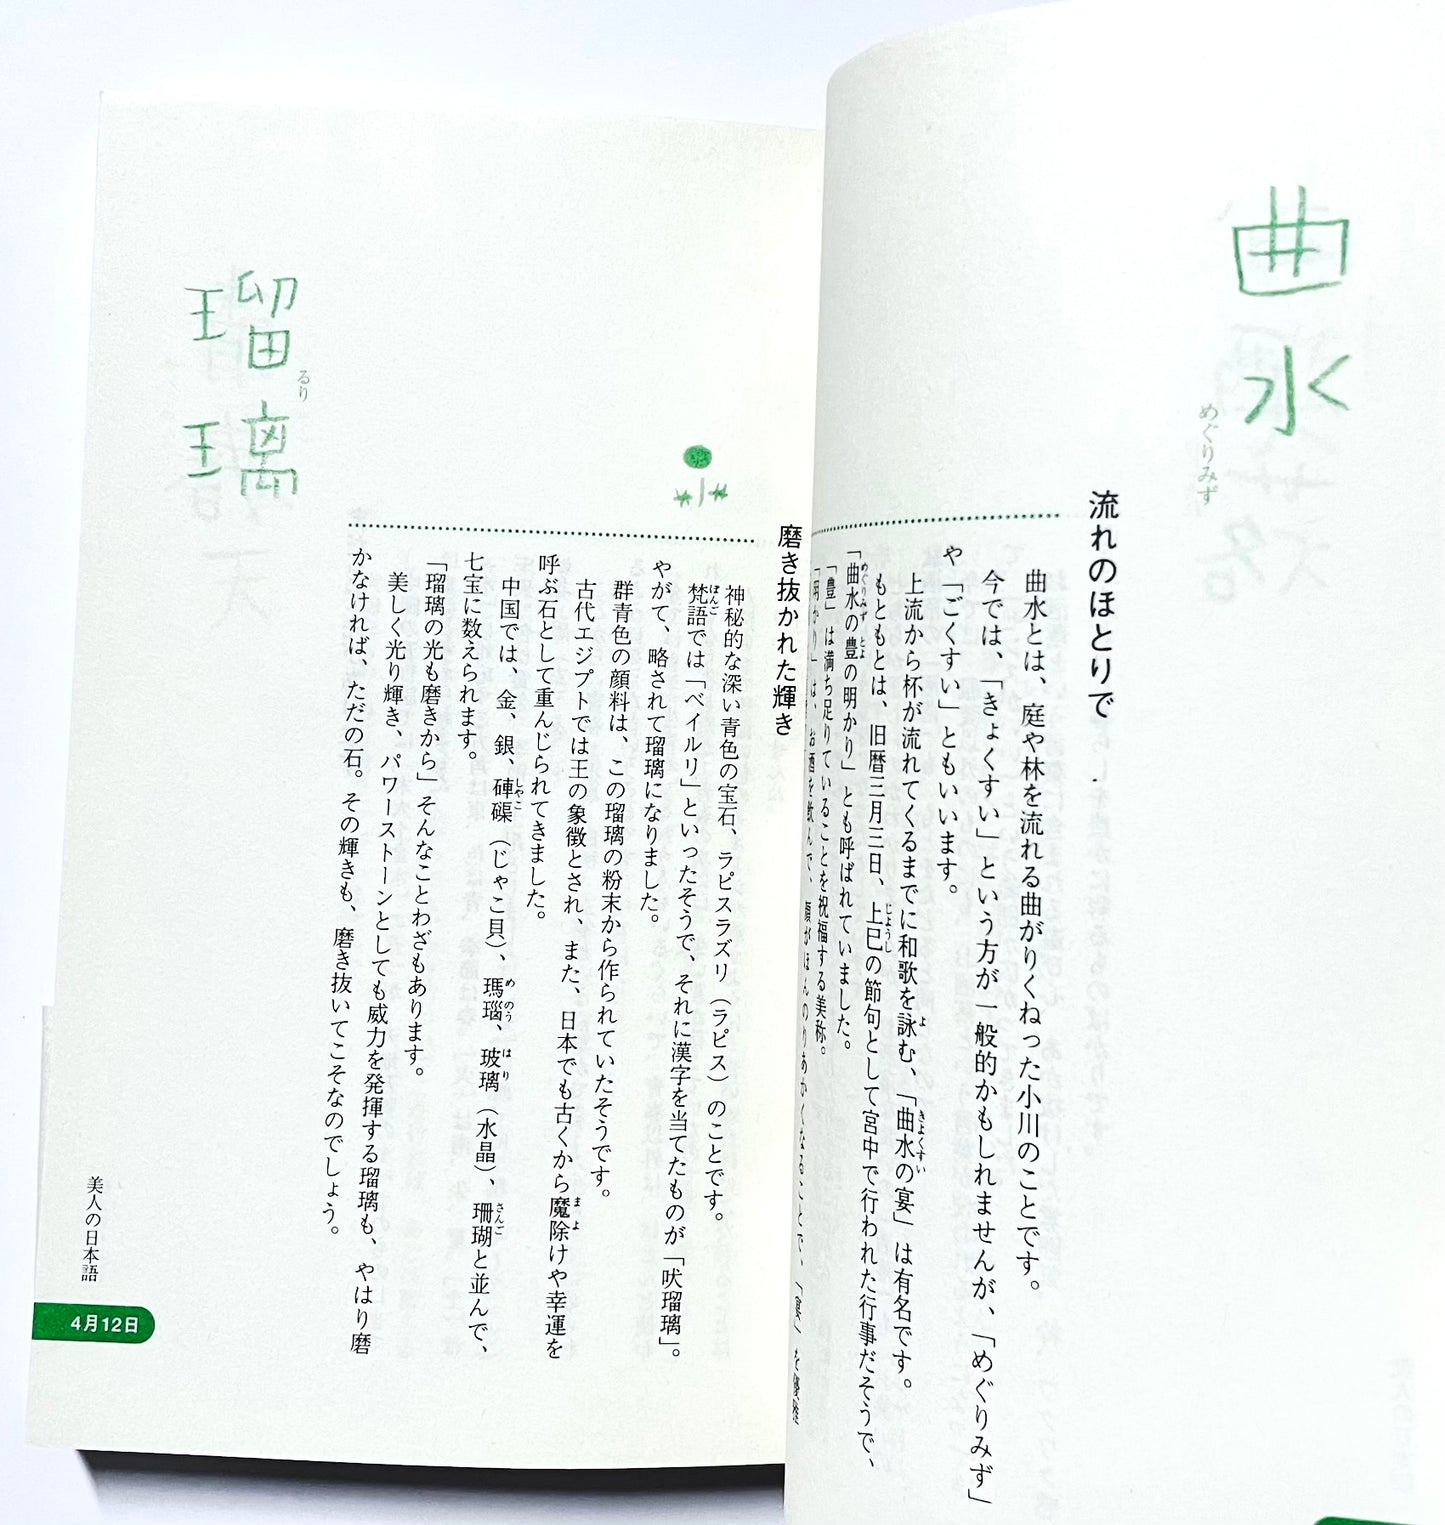 曲水
めぐりみず
流れのほとりで
曲水とは、庭や林を流れる曲がりくねった小川のことです。
今では、「きょくすい」という方が一般的かもしれませんが、「めぐりみず」
や「ごくすい」ともいいます。
上流から杯が流れてくるまでに和歌を詠む、「曲水の宴」は有名です。
よ
きょくすい
もともとは、旧暦三月三日、上巳の節句として宮中で行われた行事だそうで、
じょうし
「曲水の豊の明かり」とも呼ばれていました。
めぐりみず とよ
「豊」は満ち足りていることを祝福する美称。
「明かり」は、お酒を飲んで、顔がほんのりあかくなることで、「宴」を優雅
瑠璃
るり
磨き抜かれた輝き
神秘的な深い青色の宝石、ラピスラズリ（ラピス）のことです。
梵語では「ベイルリ」といったそうで、それに漢字を当てたものが「吠瑠璃」。
ぼんご
やがて、略されて瑠璃になりました。
群青色の顔料は、この瑠璃の粉末から作られていたそうです。
古代エジプトでは王の象徴とされ、また、日本でも古くから魔除けや幸運を
まよ
呼ぶ石として重んじられてきました。
中国では、金、銀、硨磲（じゃこ貝）、瑪瑙、玻璃（水晶）、珊瑚と並んで、
しゃこ
めのう
はり
さんご
七宝に数えられます。
「瑠璃の光も磨きから」そんなことわざもあります。
美しく光り輝き、パワーストーンとしても威力を発揮する瑠璃も、やはり磨
かなければ、ただの石。その輝きも、磨き抜いてこそなのでしょう。
美人の日本語
4月12日